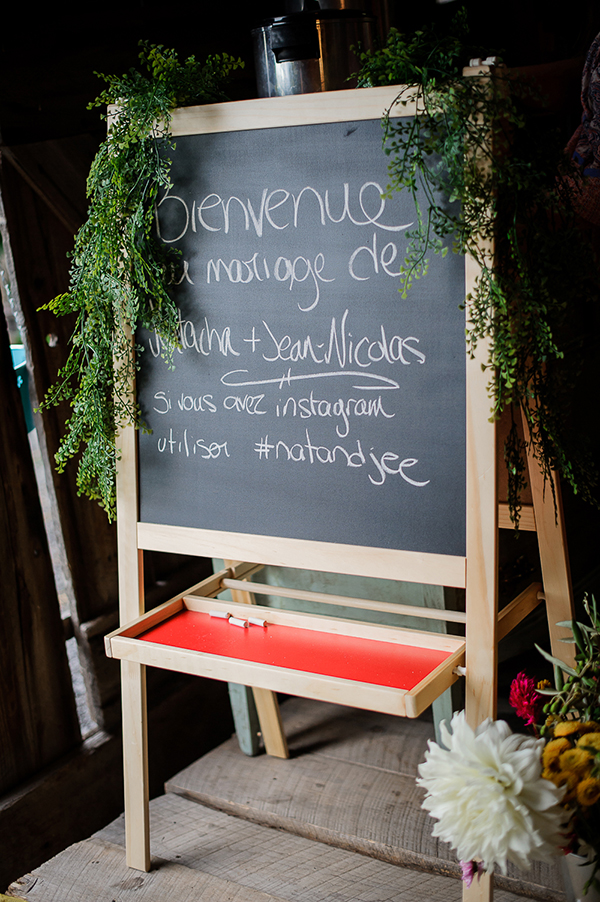 bienvenue
au mariage de
Natacha + Jean-Nicolas
si vous avez instagram
utiliser #natandjee